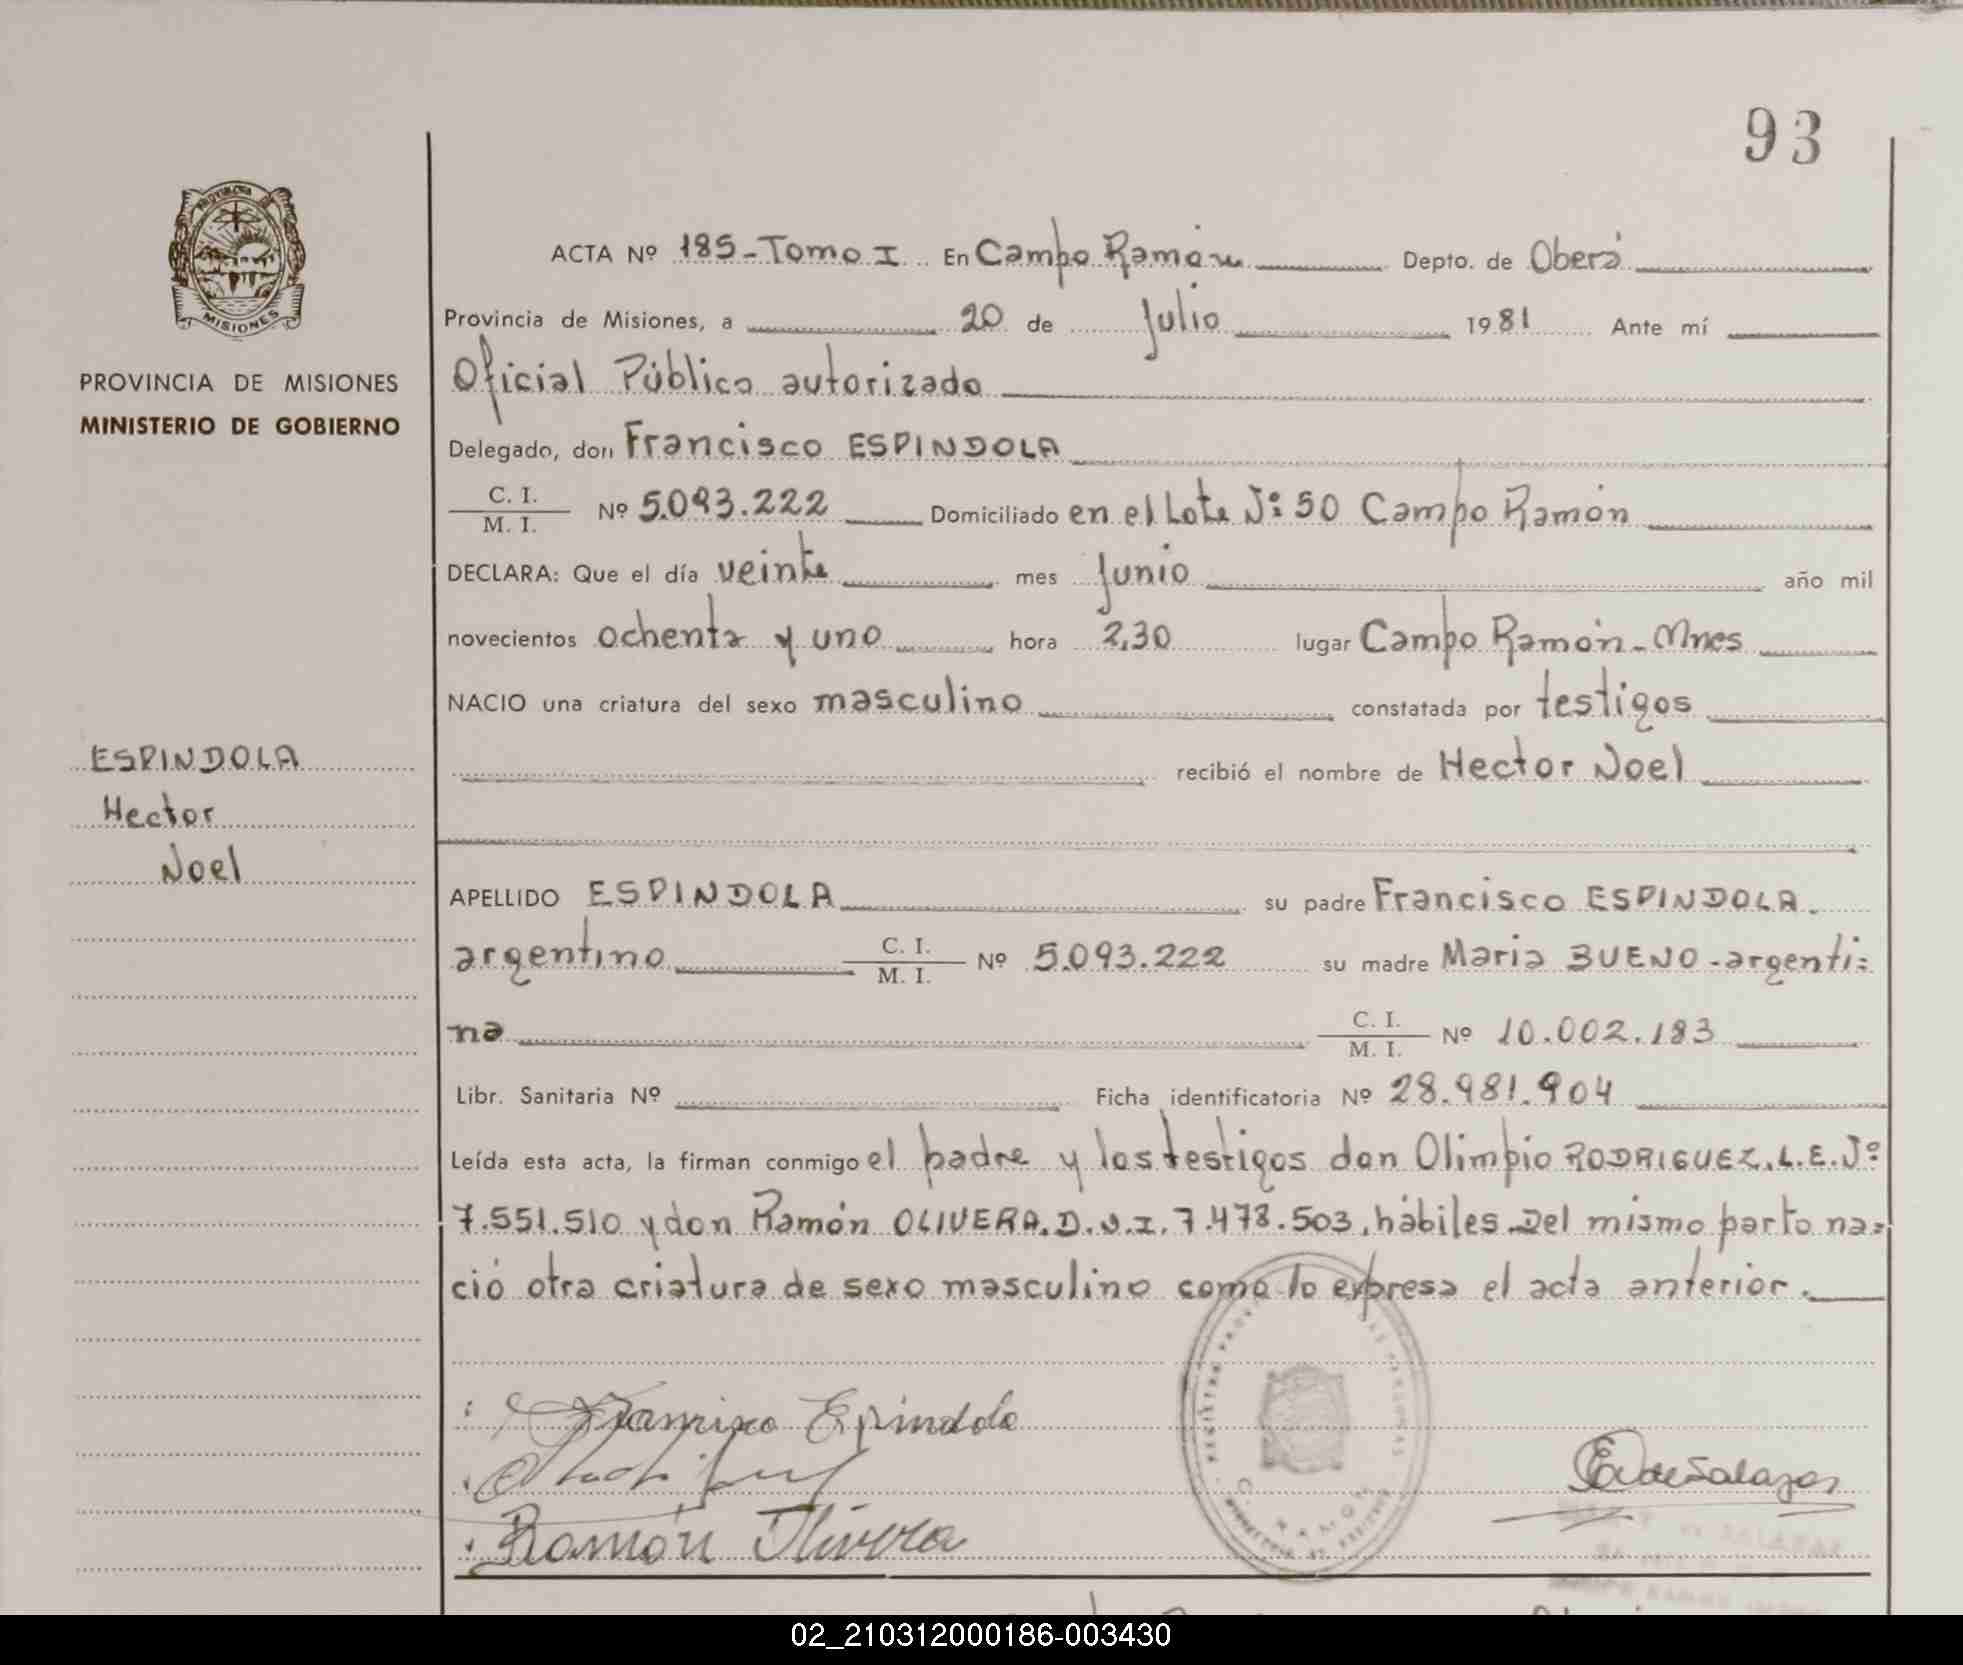 93
PROVINCIA
MISIONES
PROVINCIA DE MISIONES
MINISTERIO DE GOBIERNO
ESPINDOLA
Hector
Noel
ACTA Nº 185-Tomo I En Campo Ramón Depto. de Oberá
Provincia de Misiones, a 20 de Julio 1981 Ante mí
Oficial Público autorizado
Delegado, don Francisco ESPINDOLA
C. I.
M. I. Nº 5.093.222 Domiciliado en el Lote Nº 50 Campo Ramón
DECLARA: Que el día veinte mes Junio año mil
novecientos ochenta y uno hora 2,30 lugar Campo Ramón-Mnes
NACIO una criatura del sexo masculino constatada por testigos
recibió el nombre de Hector Noel
APELLIDO ESPINDOLA su padre Francisco ESPINDOLA.
argentino C. I.
M. I. Nº 5.093.222 su madre Maria BUENO-argenti=
na C. I.
M. I. Nº 10.002.183
Libr. Sanitaria Nº Ficha identificatoria Nº 28.981.904
Leída esta acta, la firman conmigo el padre y los testigos don Olimpio RODRIGUEZ. L.E. Nº
7.551.510 y don Ramón OLIVERA. D.N.I. 7.478.503, hábiles. Del mismo parto na=
ció otra criatura de sexo masculino como lo expresa el acta anterior.
Francisco Espindola
Ramón Olivera
EdeSalazar
SALAZAR
02_210312000186-003430